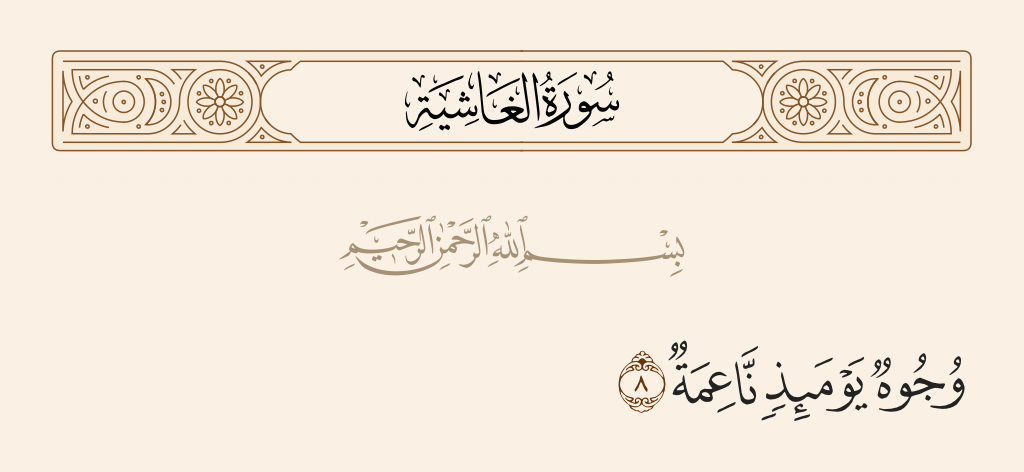 سُورَةُ الغَاشِيَةِ
بِسْمِ ٱللَّهِ ٱلرَّحْمَٰنِ ٱلرَّحِيمِ
وُجُوهٌ يَوْمَئِذٍ نَّاعِمَةٌ ٨